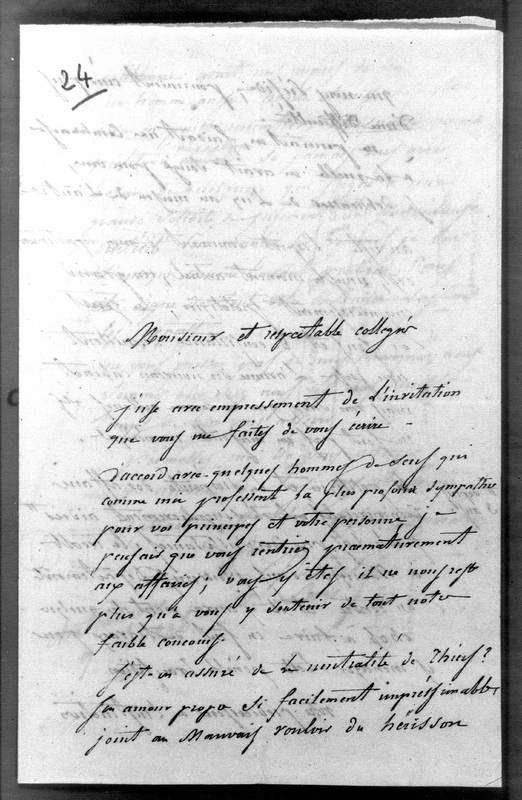 24
Monsieur et respectable collegue
j'use avec empressement de l'invitation
que vous me faites de vous écrire -
d'accord avec quelques hommes de sens qui
comme moi professent la plus profonde sympathie
pour vos principes et votre personne je
pensais que vous rentriez prematurement
aux affaires; vous y êtes il ne nous reste
plus qu'a vous y soutenir de tout notre
faible concours.
S'est-on assuré de la neutralité de Thiers?
son amour propre si facilement impressionnable,
joint au Mauvais vouloir du hérisson